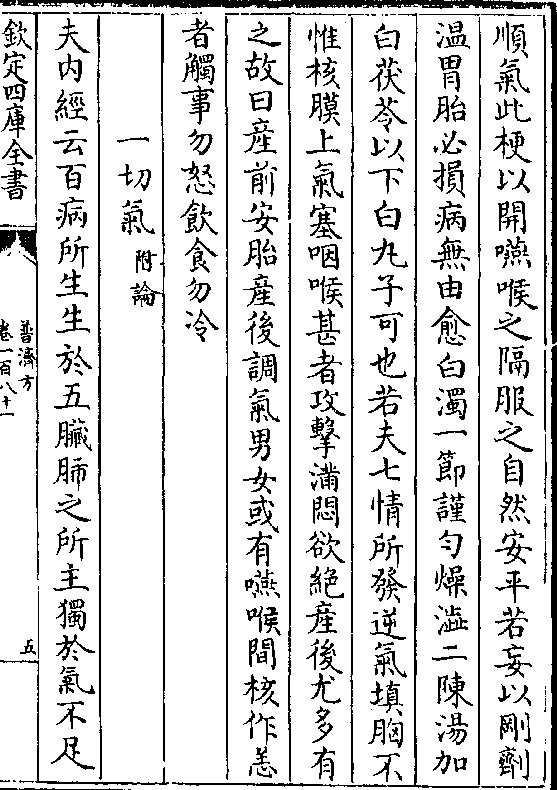 順氣此梗以開嚥喉之隔服之自然安平若妄以剛劑
温胃胎必損病無由愈白濁一節謹勻燥澁二陳湯加
白茯苓以下白丸子可也若夫七情所發逆氣填胸不
惟核膜上氣塞咽喉甚者攻擊滿悶欲絶産後尤多有
之故曰産前安胎産後調氣男女或有嚥喉間核作恙
者觸事勿怒飲食勿冷
一切氣附論
夫内經云百病所生生於五臟肺之所主獨於氣不足
欽定四庫全書
普濟方
卷一百八十一
五